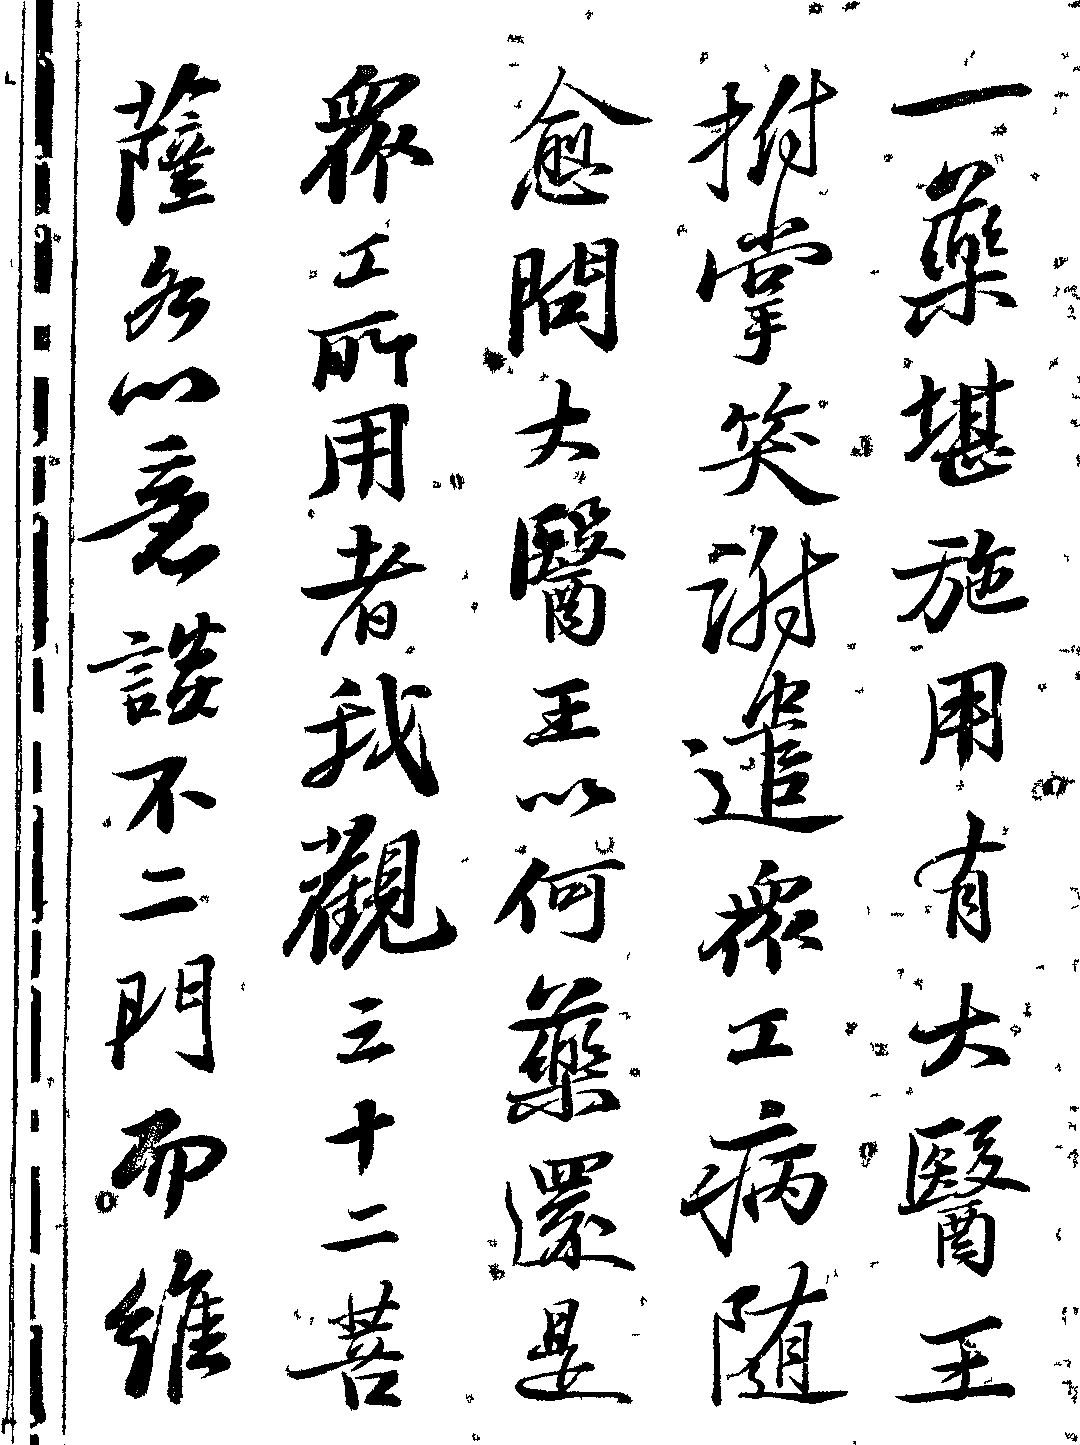 一藥堪施用有大醫王
拊掌笑謝遣眾工病随
愈問大醫王以何藥還是
眾工所用者我觀三十二菩
薩各以意談不二門而維